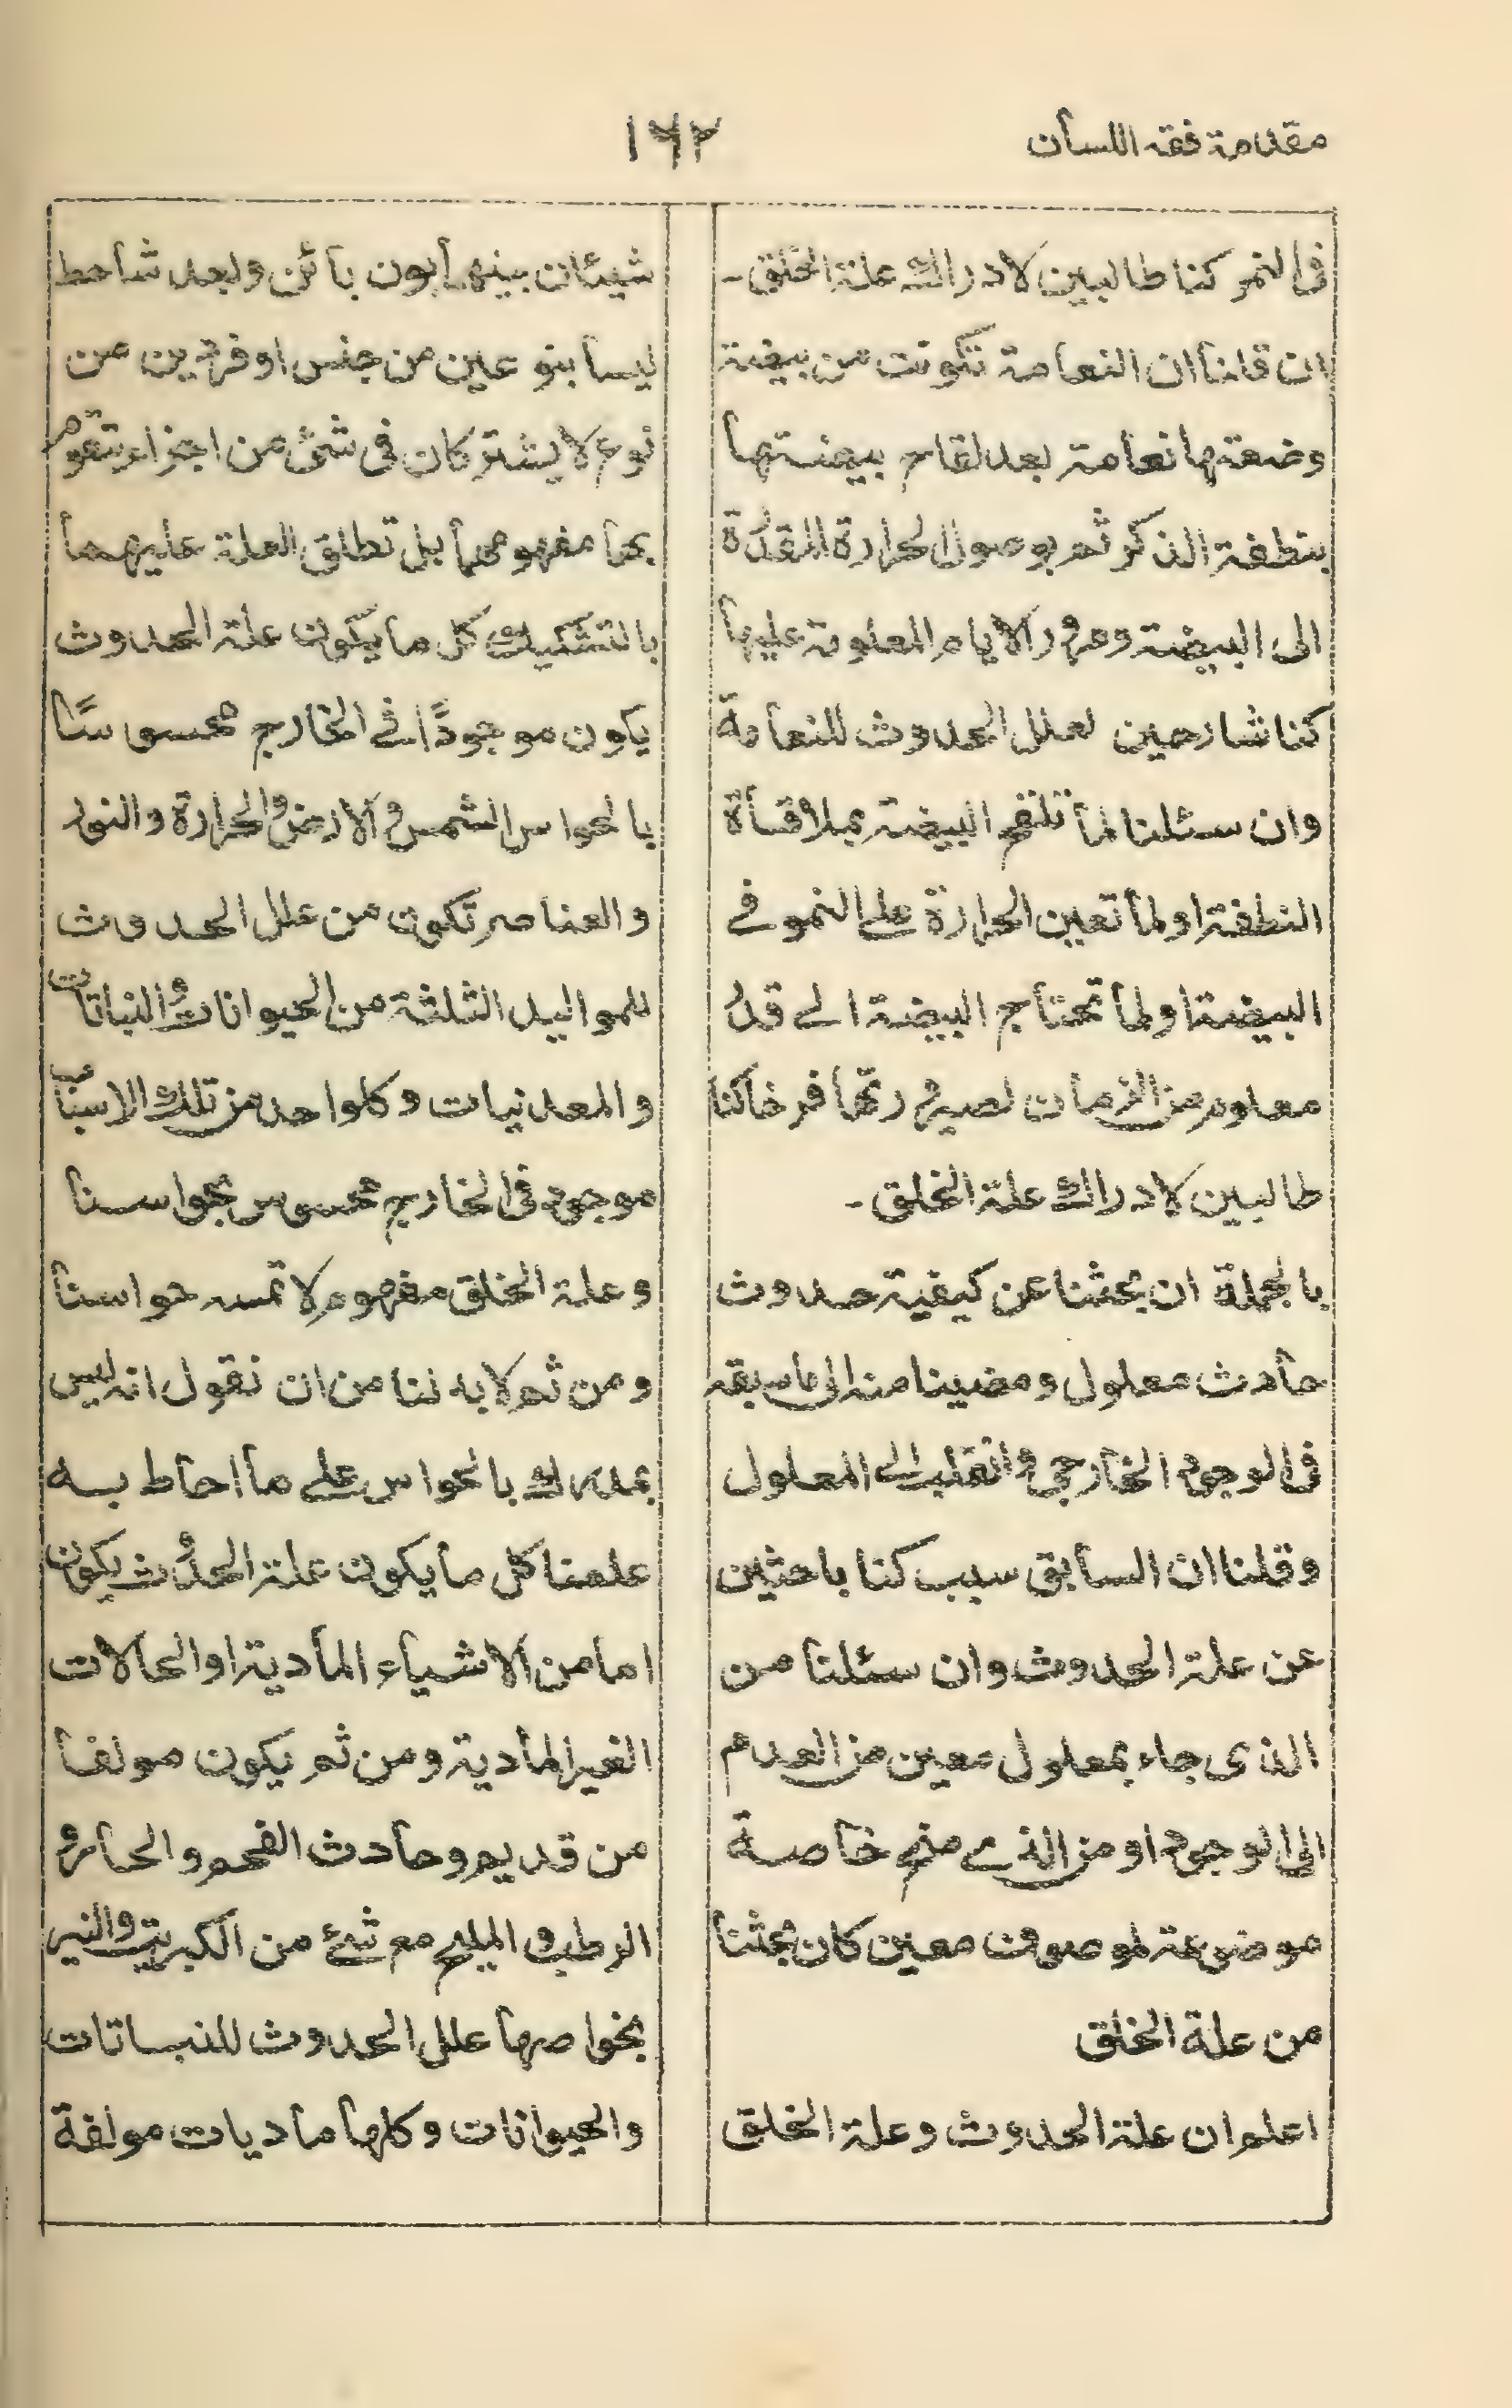 مقدمة فقه اللسان
١٦٢
فى النمر كنا طالبين لادراك علة الخلق۔
ان قلنا ان النعامة تكونت من بيضة
وضعتها نعامة بعد لقاح بيضتها
بنطفة الذكر ثم بوصول الحرارة المقدرة
الى البيضة ومرور الايام المعلومة عليها
كنا شارحين لعلل الحدوث للنعامة
وان سئلنا لما تلقح البيضة بملاقاة
النطفة او لما تعين الحرارة على النمو فى
البيضة او لما تحتاج البيضة الى قدر
معلوم من الزمان لصيرورتها فرخا كنا
طالبين لادراك علة الخلق۔
بالجملة ان بحثنا عن كيفية حدوث
حادث معلول ومضينا منه الى ما سبقه
فى الوجود الخارجى وانقلب الى المعلول
وقلنا ان السابق سبب كنا باحثين
عن علة الحدوث وان سئلنا من
الذى جاء بمعلول معين من العدم
الى الوجود او من الذى منح خاصة
موضوعة لموصوف معين كان بحثنا
من علة الخلق
اعلم ان علة الحدوث وعلة الخلق
شيئان بينهما بون بائن وبعد شاحط
ليسا بنوعين من جنس او فردين من
نوع لا يشتركان فى شئ من اجزاء تتقوم
بها مفهومها بل تطلق العلة عليهما
بالتشكيك كل ما يكون علة الحدوث
يكون موجودًا فى الخارج محسوسًا
بالحواس الشمس والارض والحرارة والنور
والعناصر تكون من علل الحدوث
للمواليد الثلثة من الحيوانات والنباتات
والمعدنيات وكلواحد من تلك الاسباب
موجود فى الخارج محسوس بحواسنا
وعلة الخلق مفهوم لا تمسه حواسنا
ومن ثم لابد لنا من ان نقول انه ليس
بمدرك بالحواس على ما احاط به
علمنا كل ما يكون علة الحدوث يكون
اما من الاشياء المادية او الحالات
الغير المادية ومن ثم يكون مولفا
من قديم وحادث الفحم والحار و
الرطب والمليح مع شئ من الكبريت والنير
بخواصها علل الحدوث للنباتات
والحيوانات وكلها ماديات مولفة